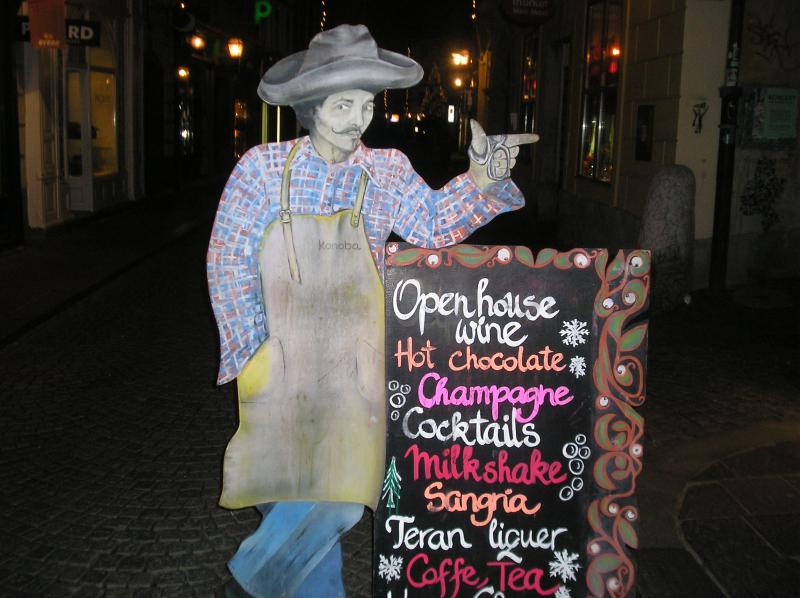 Konoba
Open house
wine
Hot chocolate
Champagne
Cocktails
Milkshake
Sangria
Teran liquer
Coffe, Tea